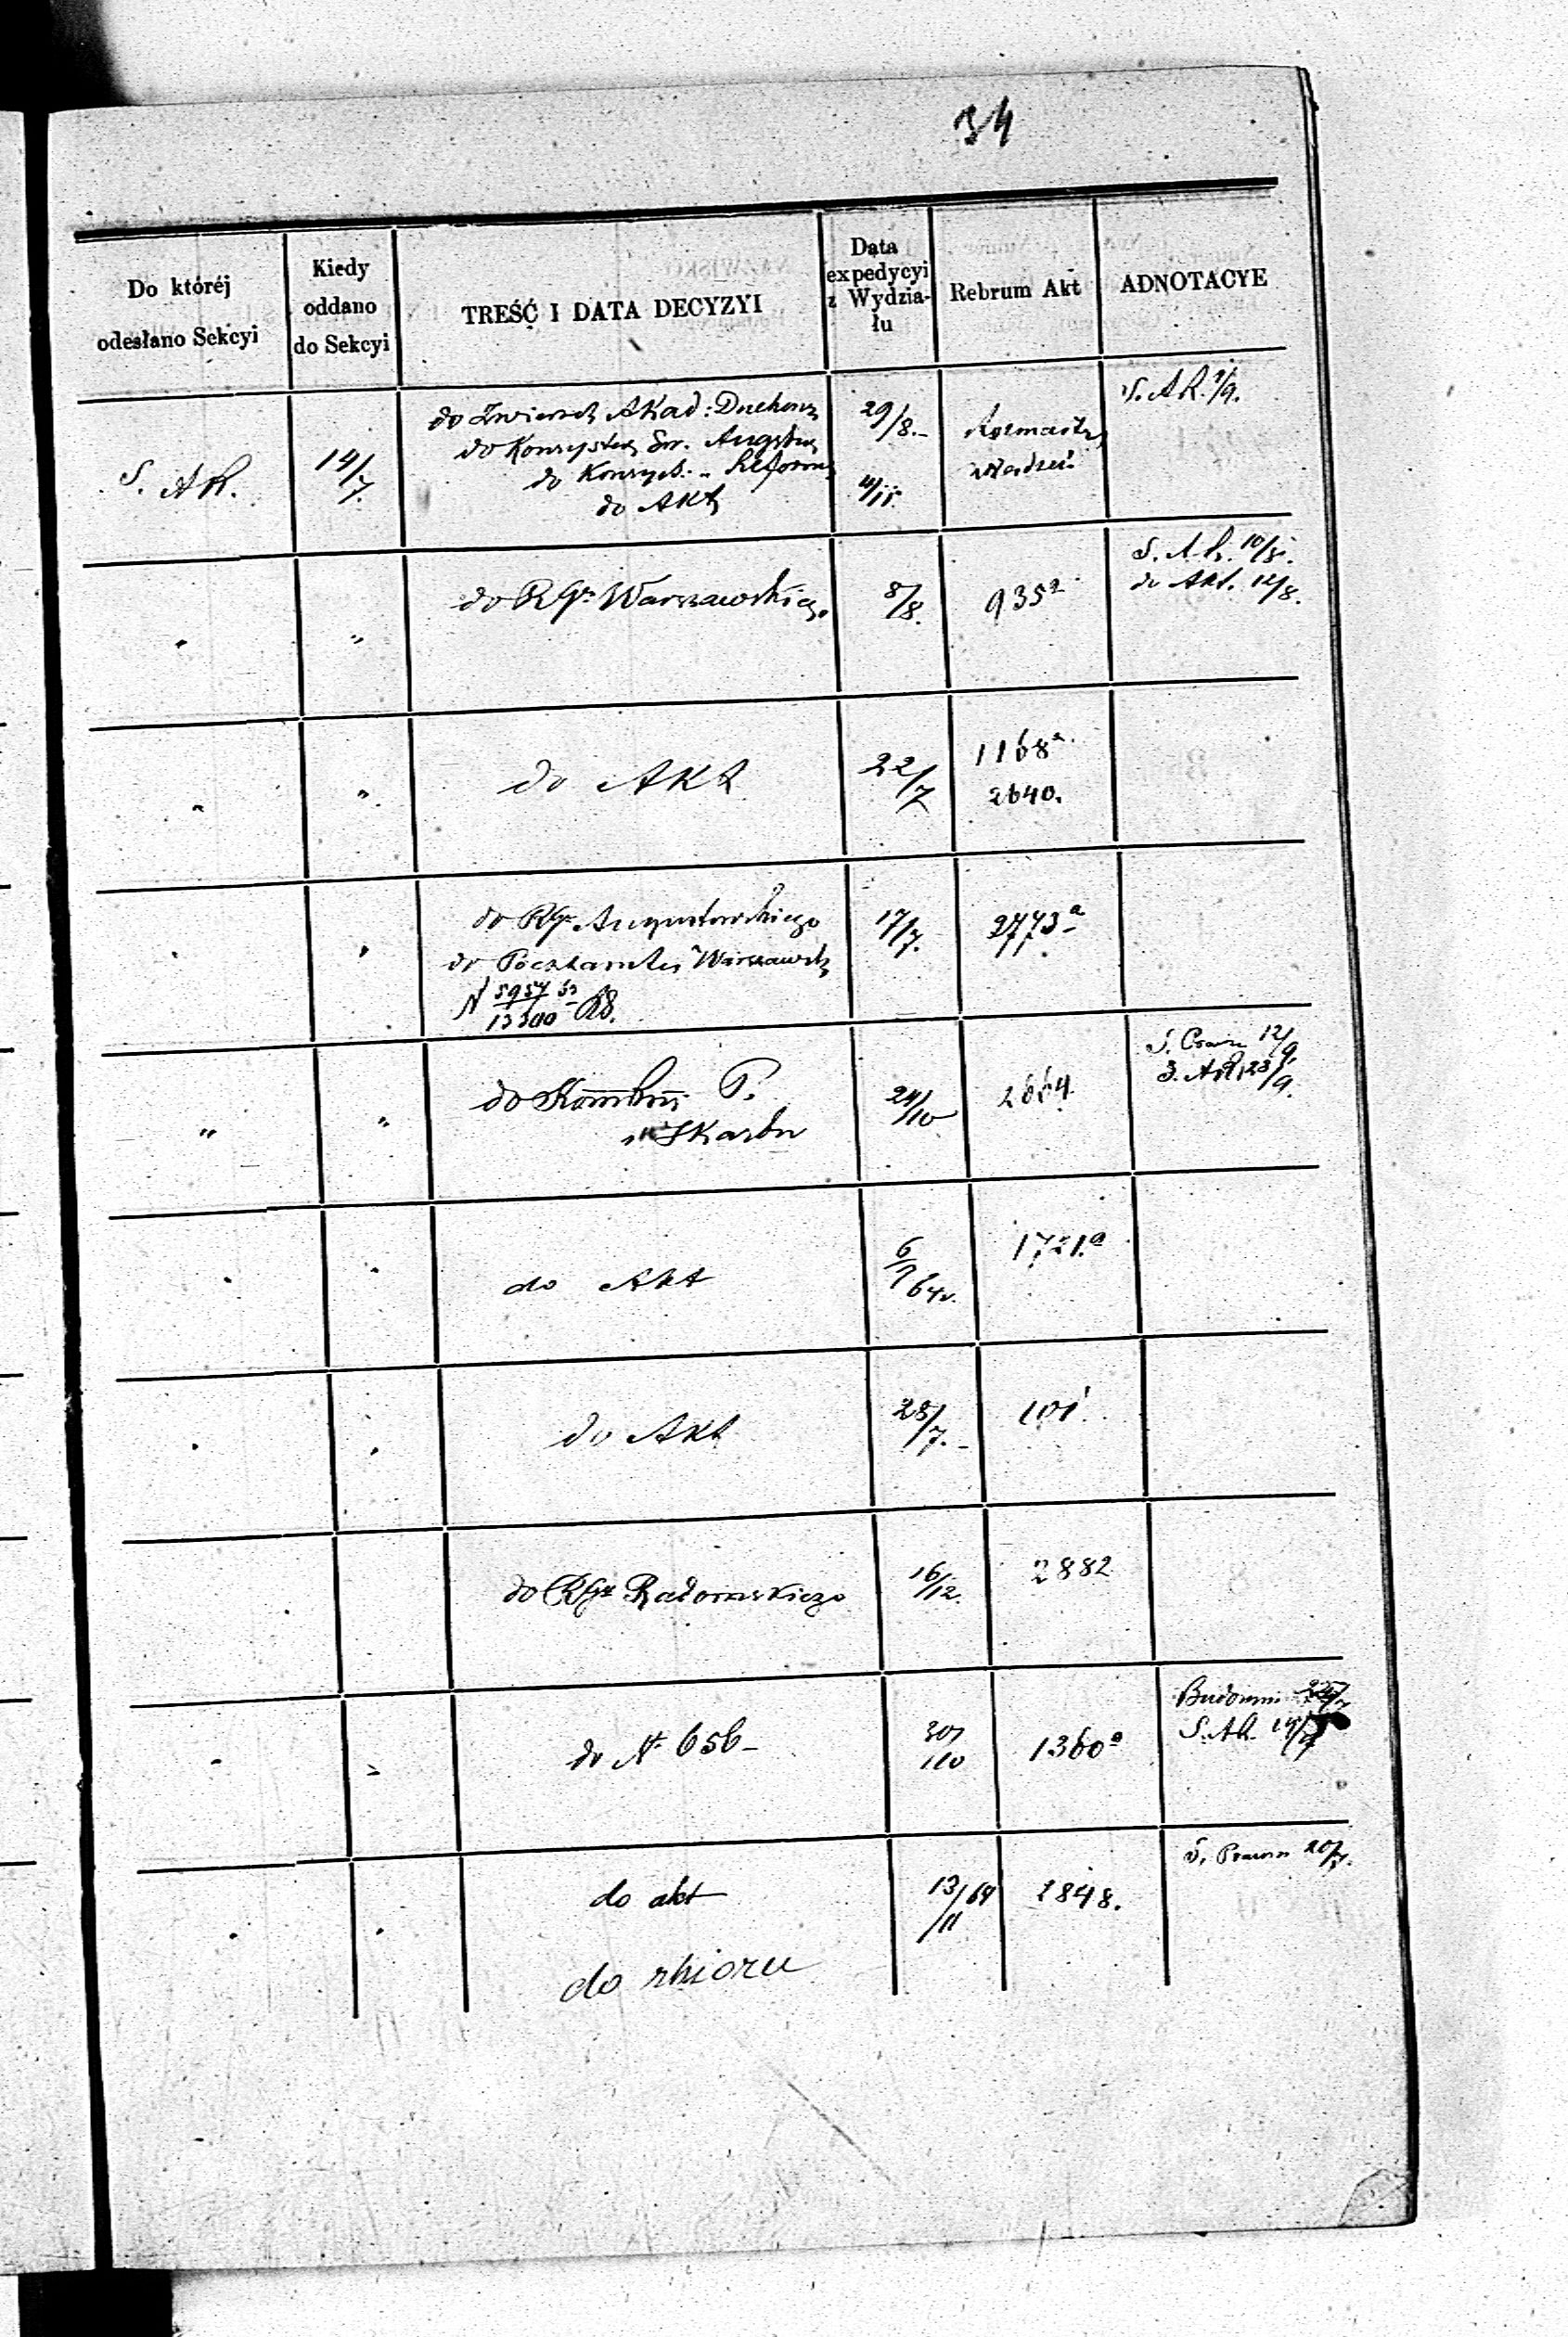 34
Do któréj odesłano Sekcyi
Kiedy oddano do Sekcyi
TREŚĆ I DATA DECYZYI
Data expedycyi z Wydziału
Rebrum Akt
ADNOTACYE
S. AR. 14/7.
do Zwierzch Akad: Duchown
do Konsystrz Ew. Augsbur
do Konsyst. " Reform
do Akt
29/8.-
4/11.
Rozmaitych
S. AR. 1/9.
" "
do RGu Warszawskiego
8/8.
935a
S. AR. 10/8.
do Akt. 12/8.
" "
do Akt
22/7
1168a
2640.
" "
do RGu Augustowskiego
do Pocztamtu Warszawsk
N 5957/13300
17/7.
2773a
" "
do P.
Skarbu
24/10
2664.
S. Prawn 12/9.
S. AR. 23/9.
" "
do Akt
6/7 64r.
1721.a
" "
do Akt
28/7.-
101.
do RGu Radomskiego
16/12.
2882
" "
do N. 656-
30/10
1360a
Budowni
S. AR.
" "
do akt
13/11 64
2848.
S. Prawn 20/7.
do zbioru